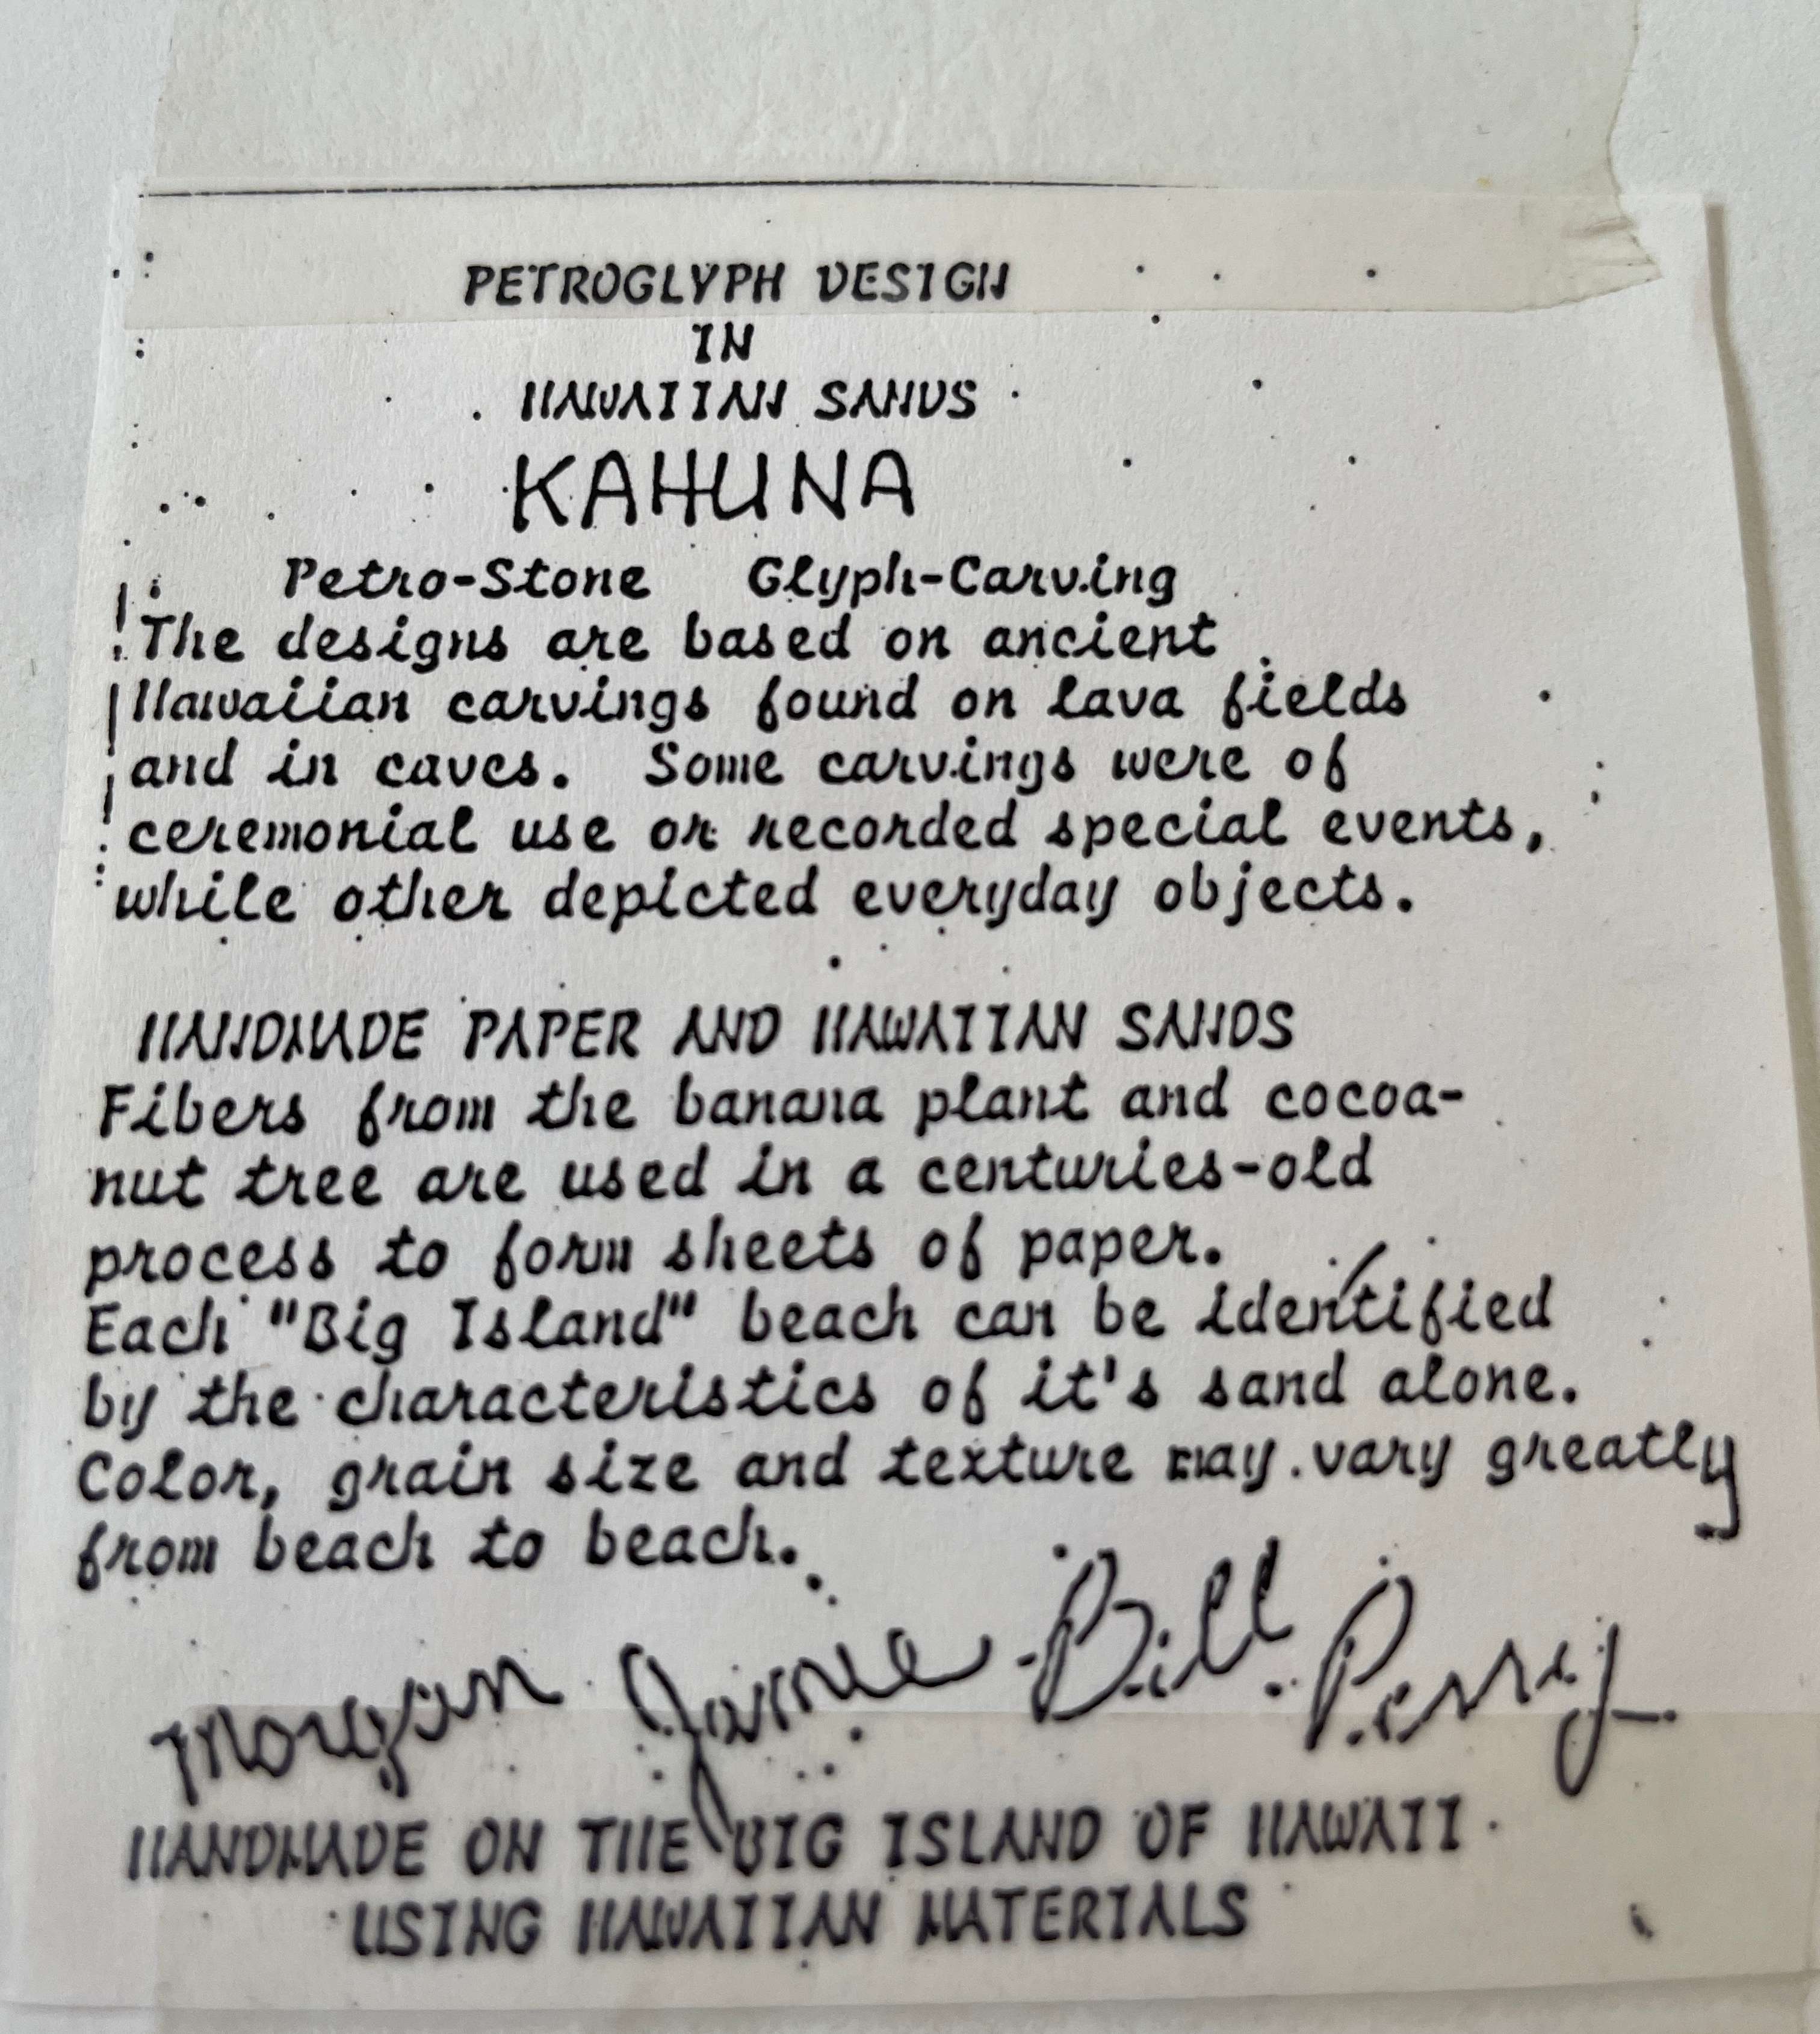 PETROGLYPH DESIGN
IN
HAWAIIAN SANDS
KAHUNA
Petro-Stone Glyph-Carving
The designs are based on ancient
Hawaiian carvings found on lava fields
and in caves. Some carvings were of
ceremonial use or recorded special events,
while other depicted everyday objects.
HANDMADE PAPER AND HAWAIIAN SANDS
Fibers from the banana plant and cocoa-
nut tree are used in a centuries-old
process to form sheets of paper.
Each "Big Island" beach can be identified
by the characteristics of it's sand alone.
Color, grain size and texture may vary greatly
from beach to beach.
Morgan Jaimee - Bill Perry
HANDMADE ON THE BIG ISLAND OF HAWAII
USING HAWAIIAN MATERIALS